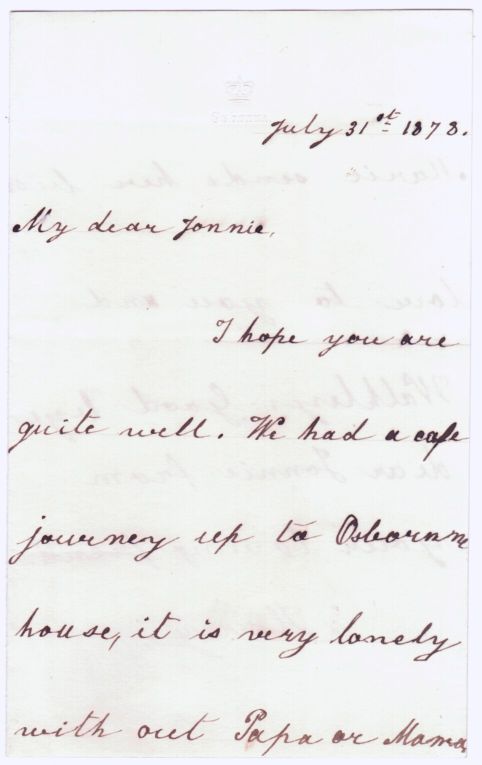 July 31st 1878.
My dear Jonnie,
I hope you are
quite well. We had a safe
journey up to Osborne
house, it is very lonely
with out Papa or Mama